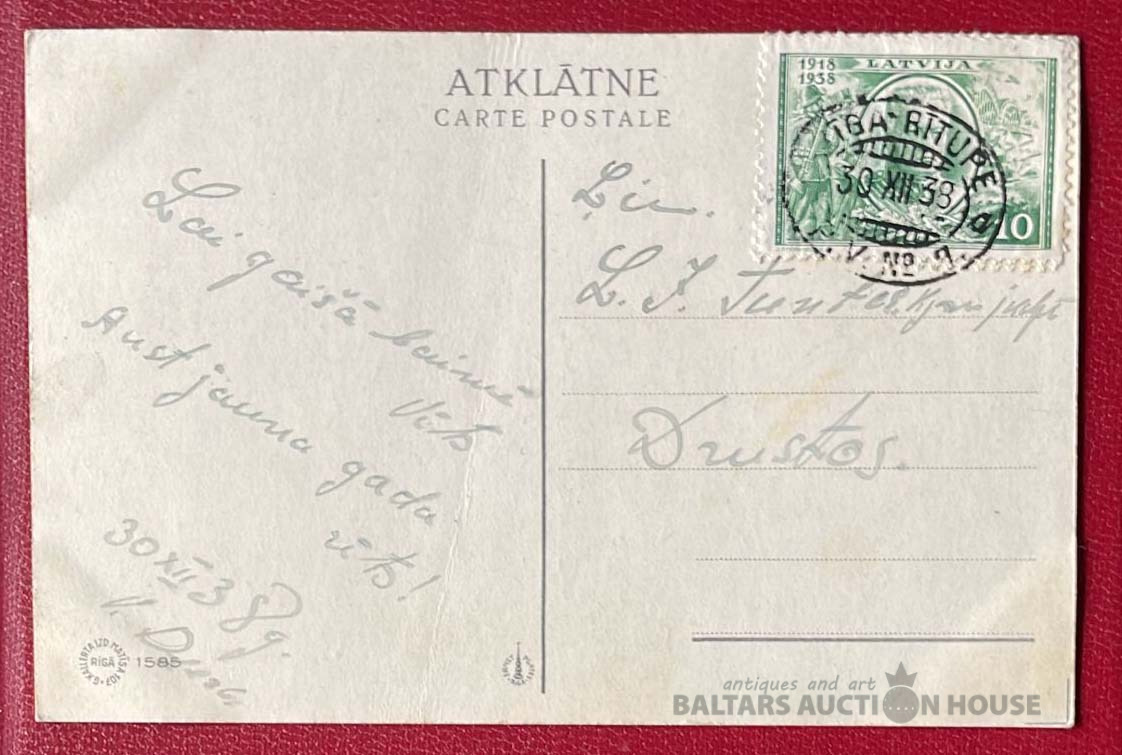 ATKLĀTNE
CARTE POSTALE
1918
1938
LATVIJA
10
RĪGA-RITUPE
30 XII 38
P. V. Nº
Lai gaišā laimē
vīts
Aust jauna gada
rīts!
30 XII 38 g.
V.
Ļ. cien.
L. J.
Drustos.
RĪGĀ
1585
antiques and art
BALTARS AUCTION HOUSE